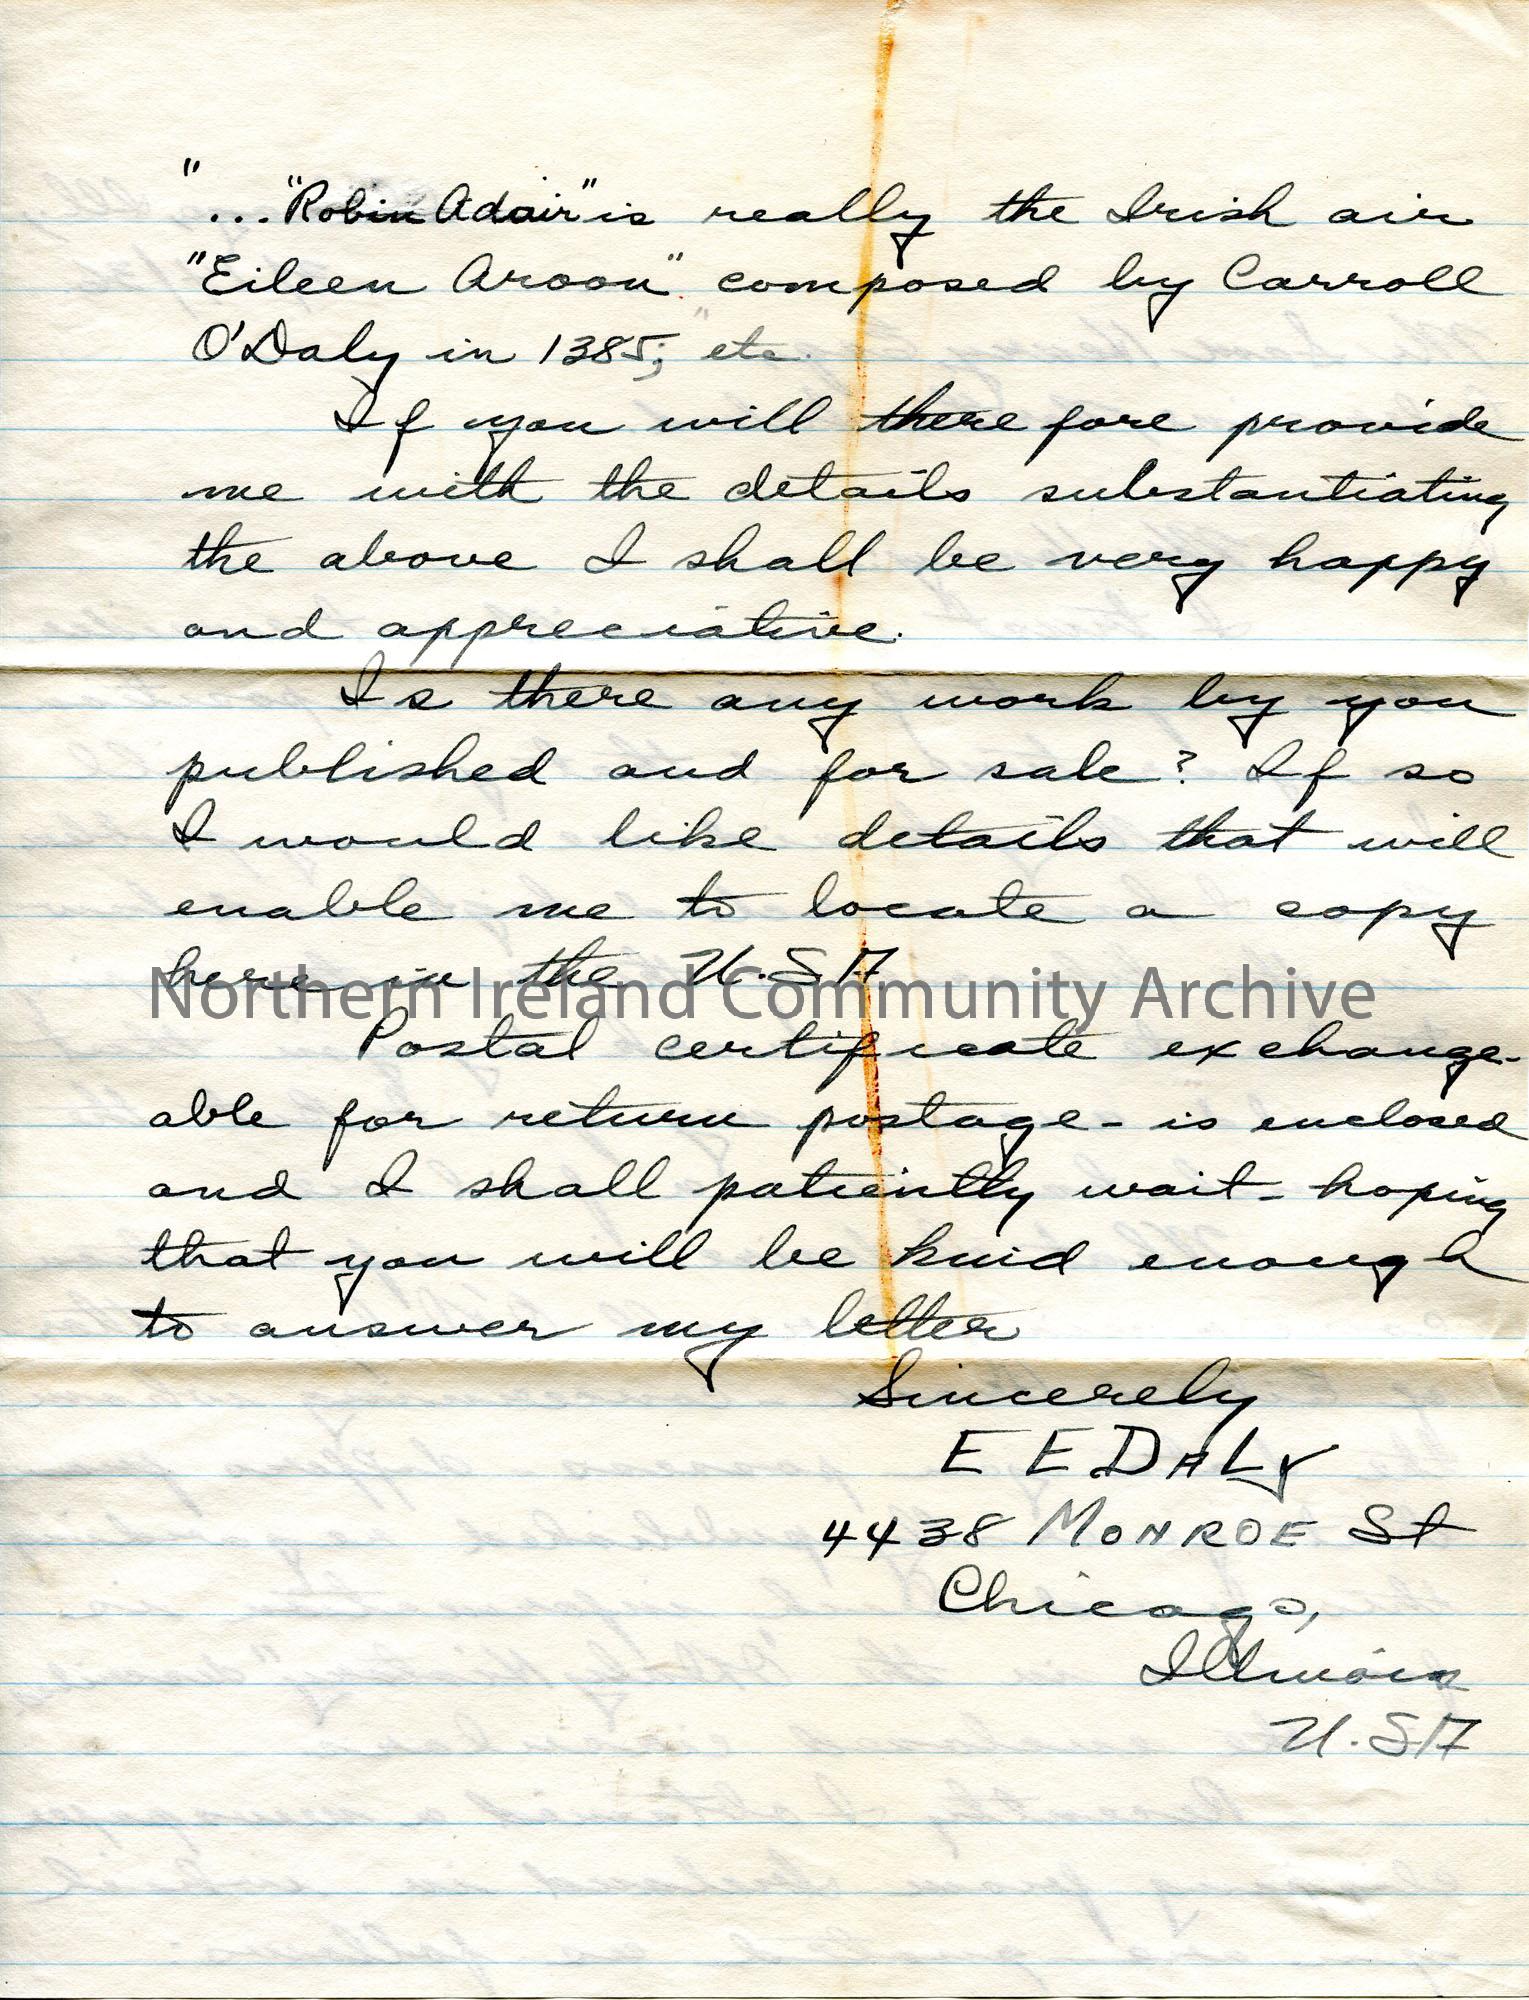 "... "Robin Adair" is really the Irish air
"Eileen Aroon" composed by Carroll
O'Daly in 1385;" etc.
If you will therefore provide
me with the details substantiating
the above I shall be very happy
and appreciative.
Is there any work by you
published and for sale? If so
I would like details that will
enable me to locate a copy
here in the U.S A
Northern Ireland Community Archive
Postal certificate exchange-
able for return postage - is enclosed
and I shall patiently wait - hoping
that you will be kind enough
to answer my letter
Sincerely
E E DALY
4438 MONROE St
Chicago,
Illinois
U.S A